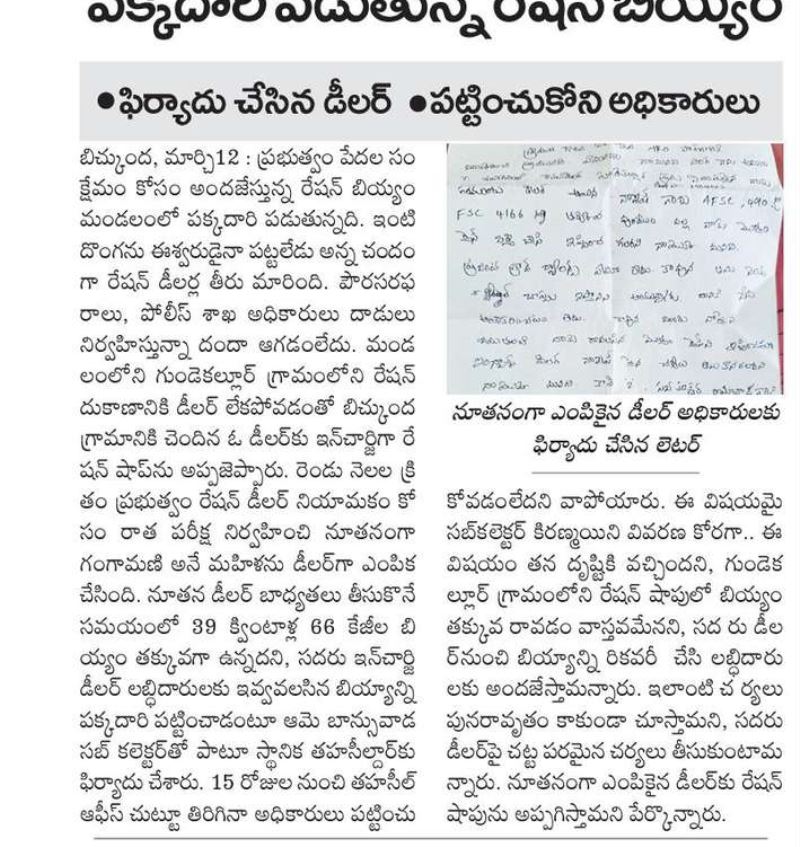 పక్కదారి పడుతున్న రేషన్ బియ్యం
●ఫిర్యాదు చేసిన డీలర్ ●పట్టించుకోని అధికారులు
బిచ్కుంద, మార్చి12 : ప్రభుత్వం పేదల సం
క్షేమం కోసం అందజేస్తున్న రేషన్ బియ్యం
మండలంలో పక్కదారి పడుతున్నది. ఇంటి
దొంగను ఈశ్వరుడైనా పట్టలేడు అన్న చందం
గా రేషన్ డీలర్ల తీరు మారింది. పౌరసరఫ
రాలు, పోలీస్ శాఖ అధికారులు దాడులు
నిర్వహిస్తున్నా దందా ఆగడంలేదు. మండ
లంలోని గుండెకల్లూర్ గ్రామంలోని రేషన్
దుకాణానికి డీలర్ లేకపోవడంతో బిచ్కుంద
గ్రామానికి చెందిన ఓ డీలర్‌కు ఇన్‌చార్జిగా రే
షన్ షాప్‌ను అప్పజెప్పారు. రెండు నెలల క్రి
తం ప్రభుత్వం రేషన్ డీలర్ నియామకం కో
సం రాత పరీక్ష నిర్వహించి నూతనంగా
గంగామణి అనే మహిళను డీలర్‌గా ఎంపిక
చేసింది. నూతన డీలర్ బాధ్యతలు తీసుకొనే
సమయంలో 39 క్వింటాళ్ల 66 కేజీల బి
య్యం తక్కువగా ఉన్నదని, సదరు ఇన్‌చార్జి
డీలర్ లబ్ధిదారులకు ఇవ్వవలసిన బియ్యాన్ని
పక్కదారి పట్టించాడంటూ ఆమె బాన్సువాడ
సబ్ కలెక్టర్‌తో పాటూ స్థానిక తహసీల్దార్‌కు
ఫిర్యాదు చేశారు. 15 రోజుల నుంచి తహసీల్
ఆఫీస్ చుట్టూ తిరిగినా అధికారులు పట్టించు
AFSC, 490
FSC 4166
నూతనంగా ఎంపికైన డీలర్ అధికారులకు
ఫిర్యాదు చేసిన లెటర్
కోవడంలేదని వాపోయారు. ఈ విషయమై
సబ్‌కలెక్టర్ కిరణ్మయిని వివరణ కోరగా.. ఈ
విషయం తన దృష్టికి వచ్చిందని, గుండెక
ల్లూర్ గ్రామంలోని రేషన్ షాపులో బియ్యం
తక్కువ రావడం వాస్తవమేనని, సద రు డీల
ర్‌నుంచి బియ్యాన్ని రికవరీ చేసి లబ్ధిదారు
లకు అందజేస్తామన్నారు. ఇలాంటి చ ర్యలు
పునరావృతం కాకుండా చూస్తామని, సదరు
డీలర్‌పై చట్ట పరమైన చర్యలు తీసుకుంటామ
న్నారు. నూతనంగా ఎంపికైన డీలర్‌కు రేషన్
షాపును అప్పగిస్తామని పేర్కొన్నారు.